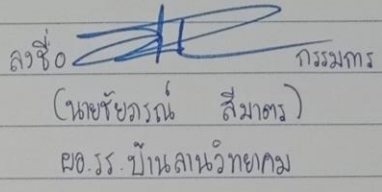 ลงชื่อ กรรมการ
(นายชัยภรณ์ สีมาตร)
ผอ.รร.บ้านลานวิทยาคม